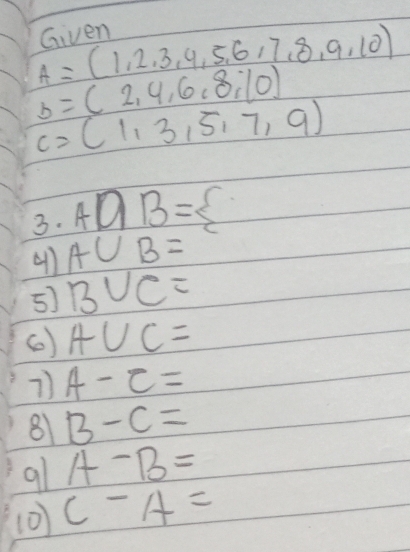 Given
A = (1,2,3,4,5,6,7,8,9,10)
b = ( 2,4,6,8,10)
C = ( 1, 3, 5, 7, 9)
3. A ∩ B = {
4) A ∪ B =
5) B ∪ C =
6) A ∪ C =
7) A - C =
8) B - C =
9) A - B =
10) C - A =